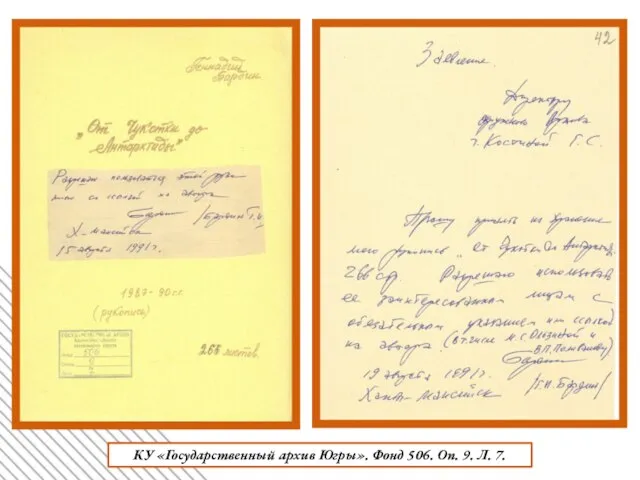 Геннадий
Бардин
„От Чукотки до
Антарктиды"
Разрешаю пользоваться этой руко
со ссылкой на автора
/Бардин Г.И/
Х-Мансийск
15 августа 1991г.
1987-90 г.г.
(рукопись)
266 листов.
42
Заявление.
Директору
окружного архива
т. Костиной Г.С.
Прошу принять на хранение
мою рукопись „От Чукотки до Антарктид.
266 стр. Разрешаю использовать
ее заинтересованным лицам с
обязательным указанием или ссылкой
на автора.
19 августа 1991г.
Ханты-Мансийск /Г.И. Бардин/
КУ «Государственный архив Югры». Фонд 506. Оп. 9. Л. 7.